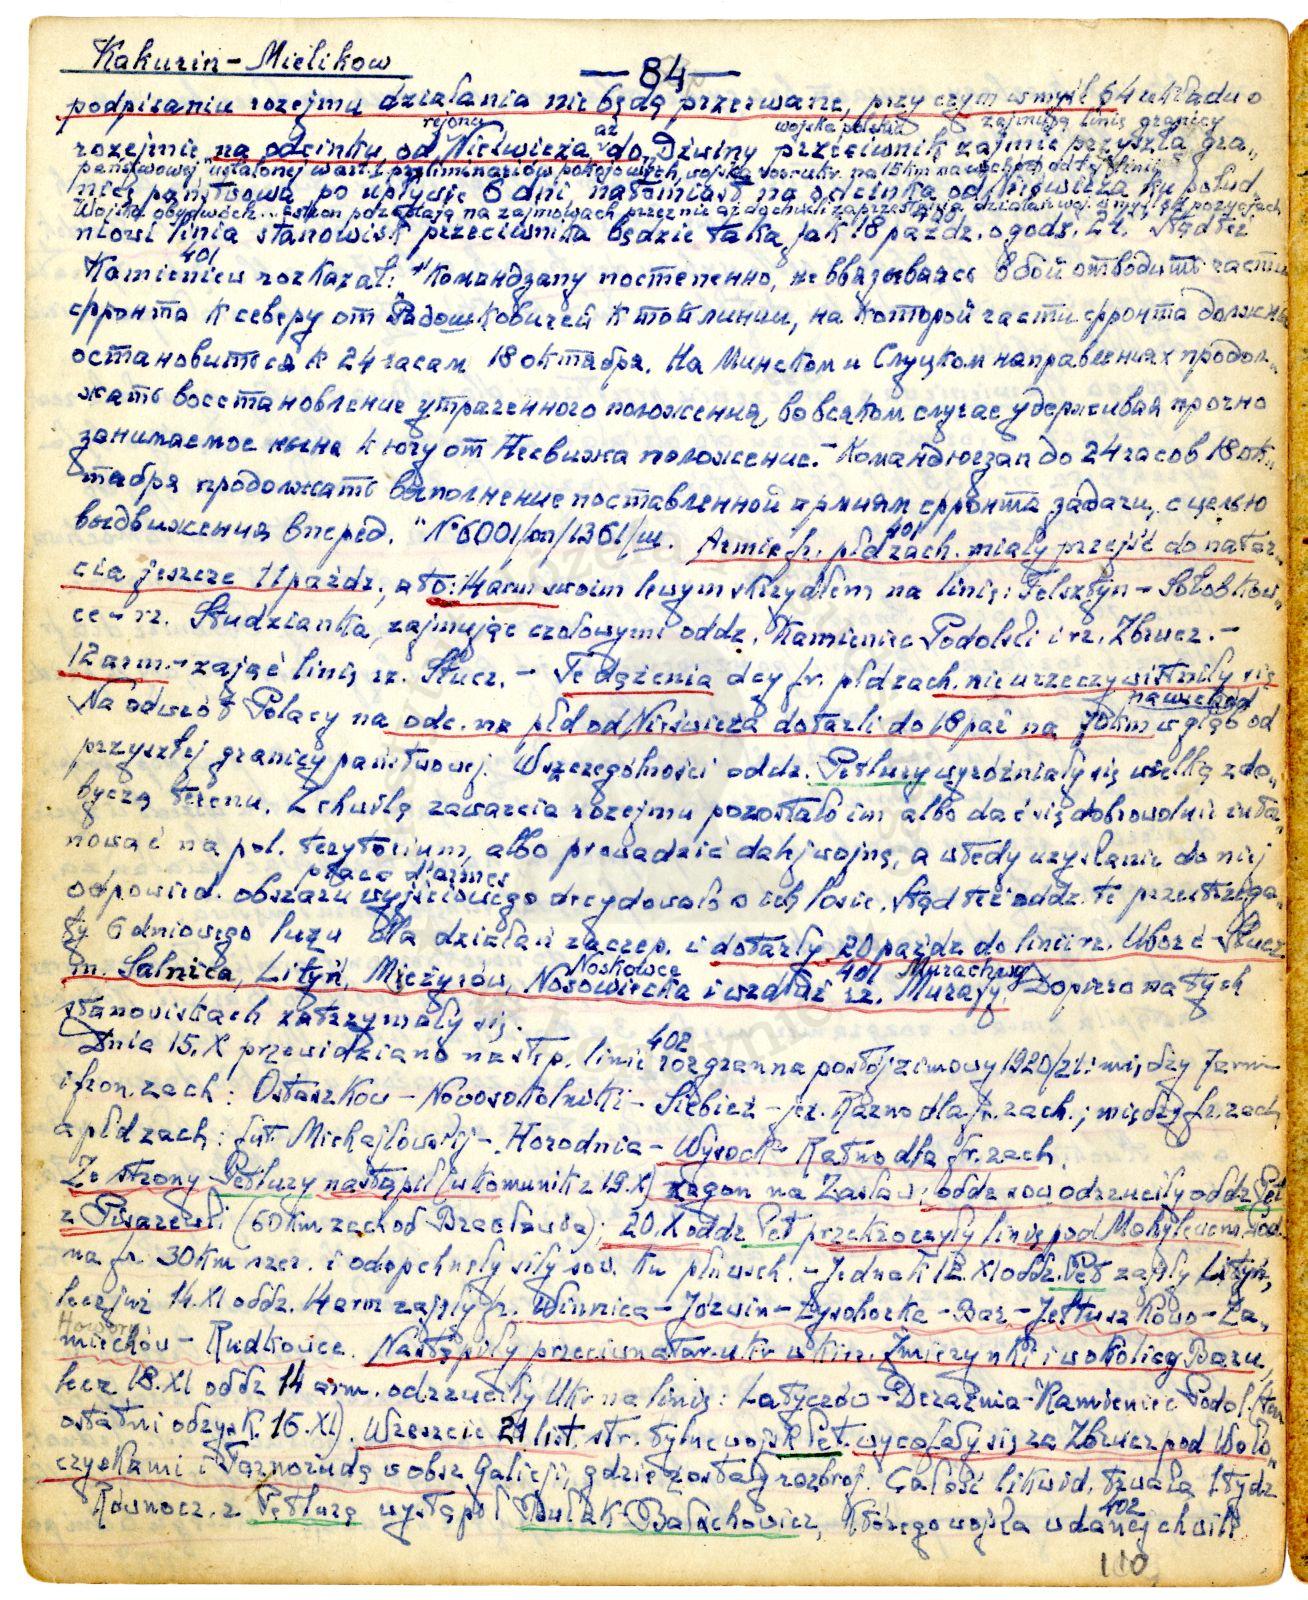 Kakurin – Mielikow
— 84 —
podpisaniu rozejmu działania nie będą przerwane, przy czym w myśl § 4 układu o
rejonu aż wojska polskie zajmują linię granicy
rozejmie na odcinku od Nieświeża do Dźwiny przeciwnik zajmie przyszłą gra„
państwowej, ustalonej w art. 1 preliminariów pokojowych, wojska sow. ukr. na 15 km na wschód od tej linii
nicę państwową po upływie 6 dni, natomiast na odcinku od Nieświeża ku połud„
Wojska obydwóch stron pozostają na zajmowanych przez nie aż do chwili zaprzestania działań woj. w myśl § 2 pozycjach
niowi linia stanowisk przeciwnika będzie taka jak 18 paźdz. o godz. 24. Stąd też
401
Kamieniew rozkazał: "Командзапу постепенно, не ввязываясь в бой отводить части
фронта к северу от Радошковичей к той линии, на которой части фронта должны
остановиться к 24 часам 18 октября. На Минском и Слуцком направлениях продол„
жать восстановление утраченного положения, во всяком случае удерживая прочно
занимаемое ныне к югу от Несвижа положение. – Командюгзап до 24 часов 18 ок„
тября продолжать выполнение поставленной армиям фронта задачи, с целью
401
выдвижения вперед." N°6001/оп/1361/ш. Armie fr. płdzach. miały przejść do natar„
cia jeszcze 11 paźdz., a to: 14 arm swoim lewym skrzydłem na linię: Felsztyn – Sołobkow„
ce – rz. Studzianka, zajmując czołowymi oddz. Kamieniec Podolski i rz. Zbrucz. –
12 arm. – zająć linię rz. Słucz. – Te dążenia dcy fr. płdzach. nie urzeczywistniły się
na wschód
Na odwrót Polacy na odc. na płd od Nieświeża dotarli do 18 paź na 70 km w głąb od
przyszłej granicy państwowej. W szczególności oddz. Petlury wyróżniały się wielką zdo„
byczą terenu. Z chwilą zawarcia rozejmu pozostało im albo dać się dobrowolnie interno„
wać na pol. terytorium, albo prowadzić dalej wojnę, a wtedy uzyskanie do niej
place d'armes
odpowied. obszaru wyjściowego decydowało o ich losie. Stąd też oddz. te przestrzega„
ły 6 dniowego luzu dla działań zaczep. i dotarły 20 paźdz do linii rz. Uborć – Słucz
Noskowce 401 Murachwy
m. Salnica, Lityń, Mieżyrów, Nosowiecka i wzdłuż rz. Murafy. Dopiero na tych
stanowiskach zatrzymały się.
402
Dnia 15.X przewidziano następ. linie rozgran na postój zimowy 1920/21: między 7 arm
i fron. zach: Ostaszków – Nowosokolniki – Siebież – jez. Razno dla fr. zach.; między fr. zach
a płd zach: fut. Michajłowskij – Horodnia – Wysock – Ratno dla fr. zach.
Ze strony Petlury nastąpił (w komunik z 19.X) zagon na Zasław; oddz sow odrzuciły oddz Pet
z Pisarewki (60 km zach od Bracławia); 20.X oddz Pet przekroczyły linię pod Mohylewem Pod.
na fr. 30 km szer. i odepchnęły siły sow. ku płnwsch. – Jednak 12.XI oddz. Pet zajęły Lityń,
lecz już 14.XI oddz. 14 arm zajęły fr. Winnica – Józwin – Łysohorka – Bar – Jołtuszkowo – Za„
Howory
miechów – Rudkowce. Nastąpiły przeciwnatar. ukr w kier. Żmierynki i w okolicę Baru,
lecz 18.XI oddz 14 arm. odrzuciły Ukr na linię: Latyczów – Deraźnia – Kamieniec Podol (ten
ostatni odzysk. 16.XI). Wreszcie 21 list. str. tylne wojsk Pet. wycofały się za Zbrucz pod Woło„
czyskami i Tarnorudą w obsz Galicji, gdzie zostały rozbroj. Całość likwid. trwała 1 tydz.
402
Równocz. z Petlurą wystąpił Bułak-Bałachowicz, którego wojska w danej chwili
110